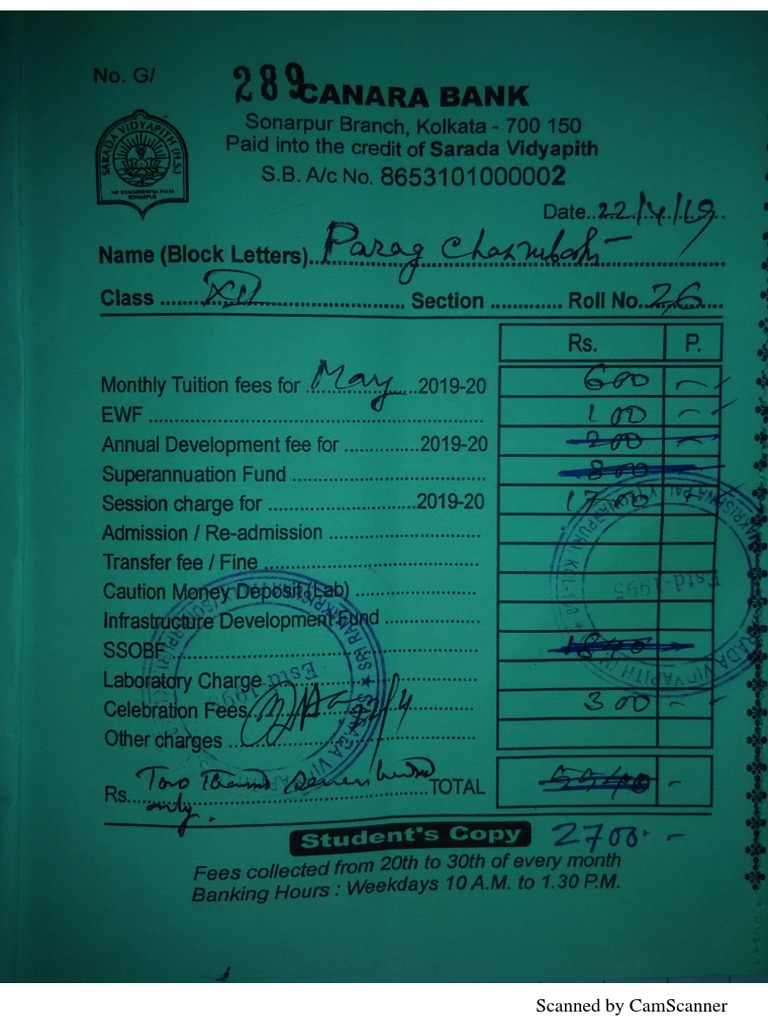 No. G/ 289
CANARA BANK
Sonarpur Branch, Kolkata - 700 150
Paid into the credit of Sarada Vidyapith
S.B. A/c No. 8653101000002
SARADA VIDYAPITH (H.S.)
SONARPUR
Date..22/4/19..
Name (Block Letters)..Parag
Class ......XII...... Section ............. Roll No..26...
Rs. P.
Monthly Tuition fees for ...May...2019-20 600 -
EWF .................... 100 -
Annual Development fee for .............2019-20 200 -
Superannuation Fund .................... 800
Session charge for ....................2019-20 1700
Admission / Re-admission ....................
Transfer fee / Fine ....................
Caution Money Deposit (Lab) ....................
Infrastructure Development Fund ....................
SSOBF .................... 1840
Laboratory Charge ....................
Celebration Fees .................... 300 -
Other charges ....................
Rs. Two Thousand Seven hundred TOTAL 5540 -
only.
Student's Copy 2700. -
Fees collected from 20th to 30th of every month
Banking Hours : Weekdays 10 A.M. to 1.30 P.M.
Estd-1995
Scanned by CamScanner